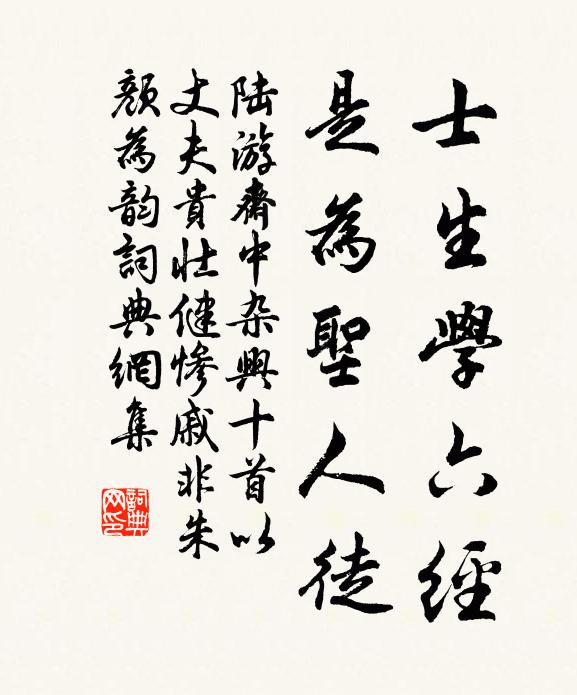 士生學六經
是為聖人徒
陆游齋中杂興十首以
丈夫貴壮健慘戚非朱
顔為韵詞典網集
詞典
网印